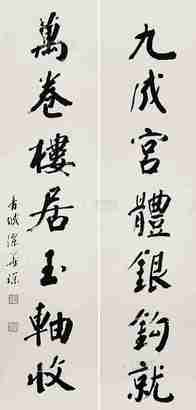 九成宮體銀鉤就
萬卷樓居玉軸收